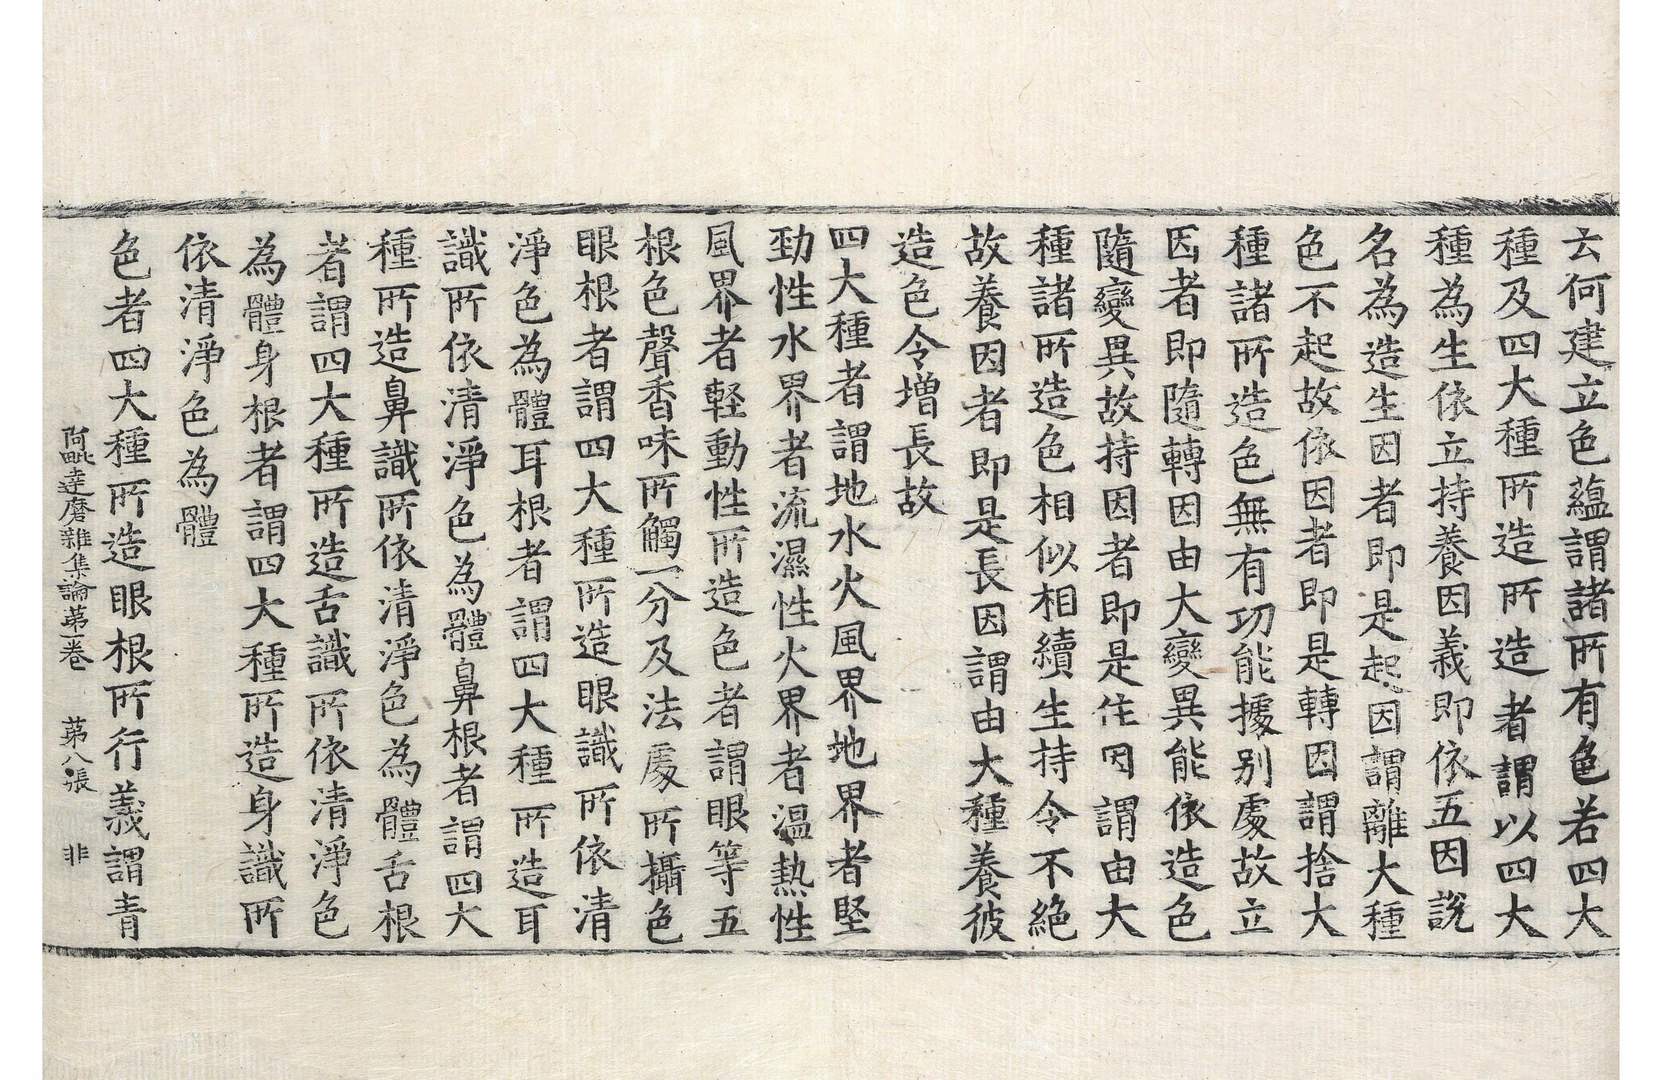 云何建立色蘊謂諸所有色若四大
種及四大種所造所造者謂以四大
種為生依立持養因義即依五因說
名為造生因者即是起因謂離大種
色不起故依因者即是轉因謂捨大
種諸所造色無有功能據別處故立
因者即隨轉因由大變異能依造色
隨變異故持因者即是住因謂由大
種諸所造色相似相續生持令不絕
故養因者即是長因謂由大種養彼
造色令增長故
四大種者謂地水火風界地界者堅
勁性水界者流濕性火界者温熱性
風界者軽動性所造色者謂眼等五
根色聲香味所觸一分及法處所攝色
眼根者謂四大種所造眼識所依清
淨色為體耳根者謂四大種所造耳
識所依清淨色為體鼻根者謂四大
種所造鼻識所依清淨色為體舌根
者謂四大種所造舌識所依清淨色
為體身根者謂四大種所造身識所
依清淨色為體
色者四大種所造眼根所行義謂青
阿毗達磨雜集論第一卷 第八張 非